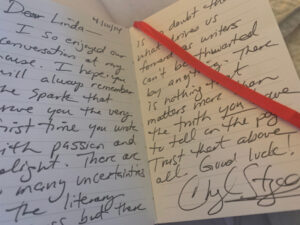 Dear Linda—
I so enjoyed our
conversation at my
house. I hope you
will always remember
the spark that
gave you the very
first time you wrote
with passion and
delight. There are
so many uncertainties
the literary
but there
is no doubt that
what drives us
forward as writers
can't be thwarted
by anything. There
is nothing that
matters more than
the truth you have
to tell on the page.
Trust that above
all. Good luck!